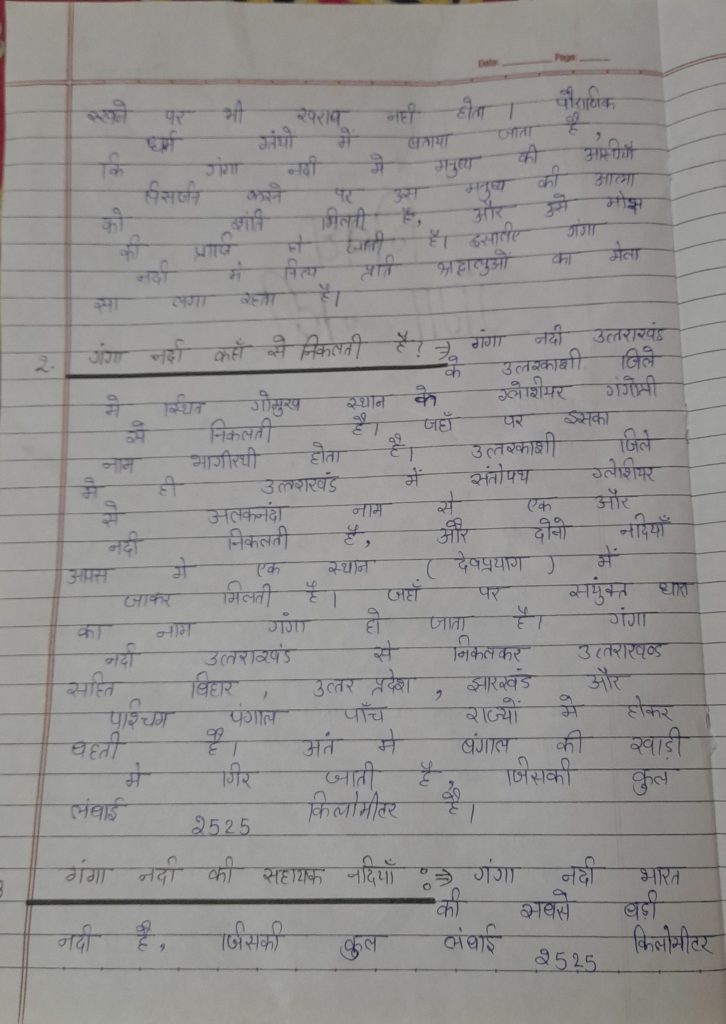 Date: ____ Page: ____
रखने पर भी खराब नही होता । पौराणिक
धर्म ग्रंथो में बताया जाता है,
कि गंगा नदी मे मनुष्य की
विसर्जन करने पर उस मनुष्य की आत्मा
को शांति मिलती है, और उसे मोक्ष
की प्राप्ति हो जाती है। इसलिए गंगा
नदी में नित्य प्रति श्रद्धालुओं का मेला
सा लगा रहता है।
2. गंगा नदी कहाँ से निकलती है? ⇒ गंगा नदी उत्तराखंड
के उत्तरकाशी जिले
मे स्थित गोमुख स्थान के ग्लेशियर गंगोत्री
से निकलती है। जहाँ पर इसका
नाम भागीरथी होता है। उत्तरकाशी जिले
मे ही उत्तराखंड में संतोपथ ग्लेशियर
से अलकनंदा नाम से एक और
नदी निकलती है, और दोनो नदियाँ
आपस मे एक स्थान ( देवप्रयाग ) में
जाकर मिलती है। जहाँ पर संयुक्त धारा
का नाम गंगा हो जाता है। गंगा
नदी उत्तराखंड से निकलकर उत्तराखण्ड
सहित बिहार , उत्तर प्रदेश , झारखंड और
पश्चिम पंगाल पाँच राज्यों मे होकर
बहती है। अंत मे बंगाल की खाड़ी
मे गिर जाती है, जिसकी कुल
लंबाई 2525 किलोमीटर है।
गंगा नदी की सहायक नदियाँ :⇒ गंगा नदी भारत
की सबसे बड़ी
नदी है, जिसकी कुल लंबाई 2525 किलोमीटर